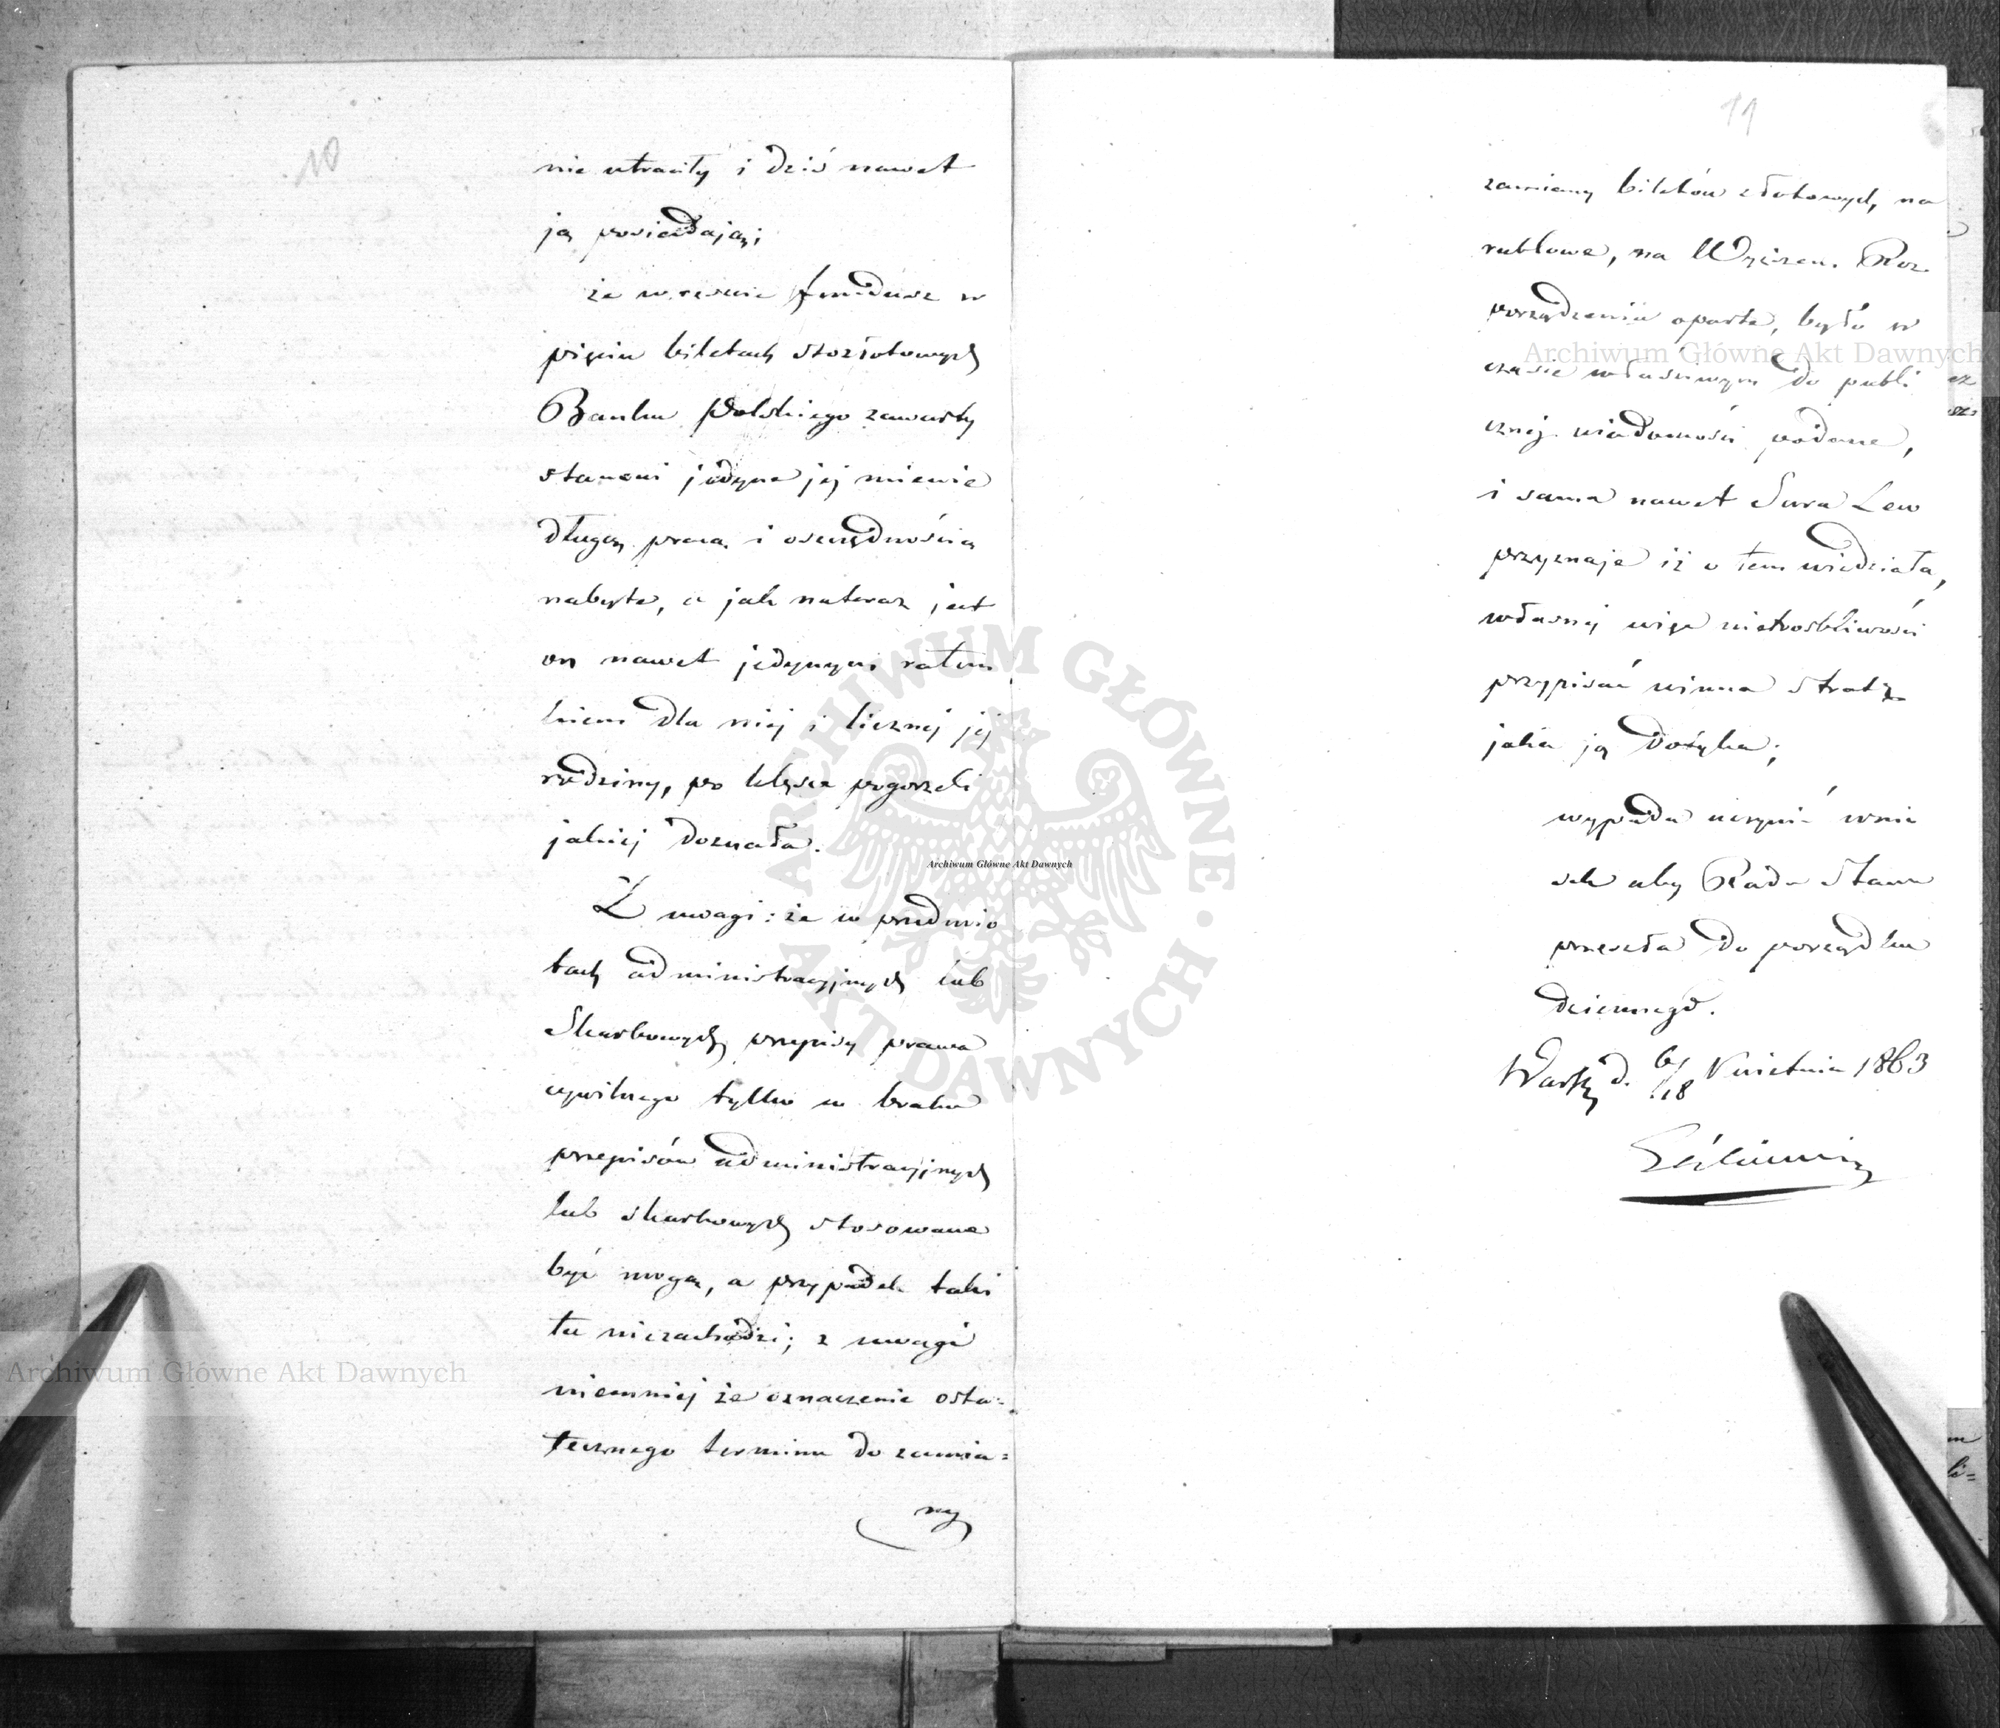 10
nie utraciły i dziś nawet
ją posiadają;
że wreszcie fundusz w
pięciu biletach stozłotowych
Banku Polskiego zawarty
stanowi jedyne jej mienie
długą pracą i oszczędnością
nabyte, a jak na teraz jest
on nawet jedynym ratun
kiem dla niej i licznej jej
rodziny, po klęsce pogorzeli
jakiej doznała.
Z uwagi: że w przedmio
tach administracyjnych lub
Skarbowych, przepisy prawa
cywilnego tylko w braku
przepisów administracyjnych
lub skarbowych stosowane
być mogą, a przypadek taki
tu niezachodzi; z uwagi
niemniej że oznaczenie osta-
tecznego terminu do zamia=
ny
11
zamiany biletów złotowych, na
rublowe, na Wyższem Roz
porządzeniu oparte, było w
czasie właściwym do publi
cznej wiadomości podane,
i sama nawet Sura Lew
przyznaje iż o tem wiedziała,
własnej więc nietroskliwości
przypisać winna stratę
jaka ją dotyka;
wypada uczynić wnio
sek aby Rada Stanu
przeszła do porządku
dziennego.
Warsz d. 6/18 Kwietnia 1863
Archiwum Główne Akt Dawnych
Archiwum Główne Akt Dawnych
ARCHIWUM GŁÓWNE AKT DAWNYCH
Archiwum Główne Akt Dawnych